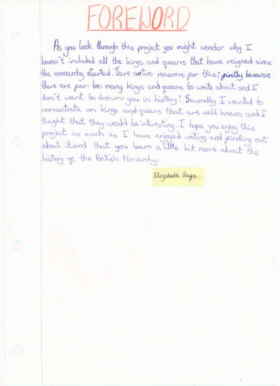 FOREWORD
As you look through this project you might wonder why I
haven't included all the kings and queens that have reigned since
the monarchy started. I have two reasons for this: firstly because
there are far too many kings and queens to write about and I
don't want to drown you in history! Secondly I wanted to
concentrate on kings and queens that are well known and I
thought that they would be interesting. I hope you enjoy this
project as much as I have enjoyed writing and finding out
about it and that you learn a little bit more about the
history of the British Monarchy.
Elizabeth